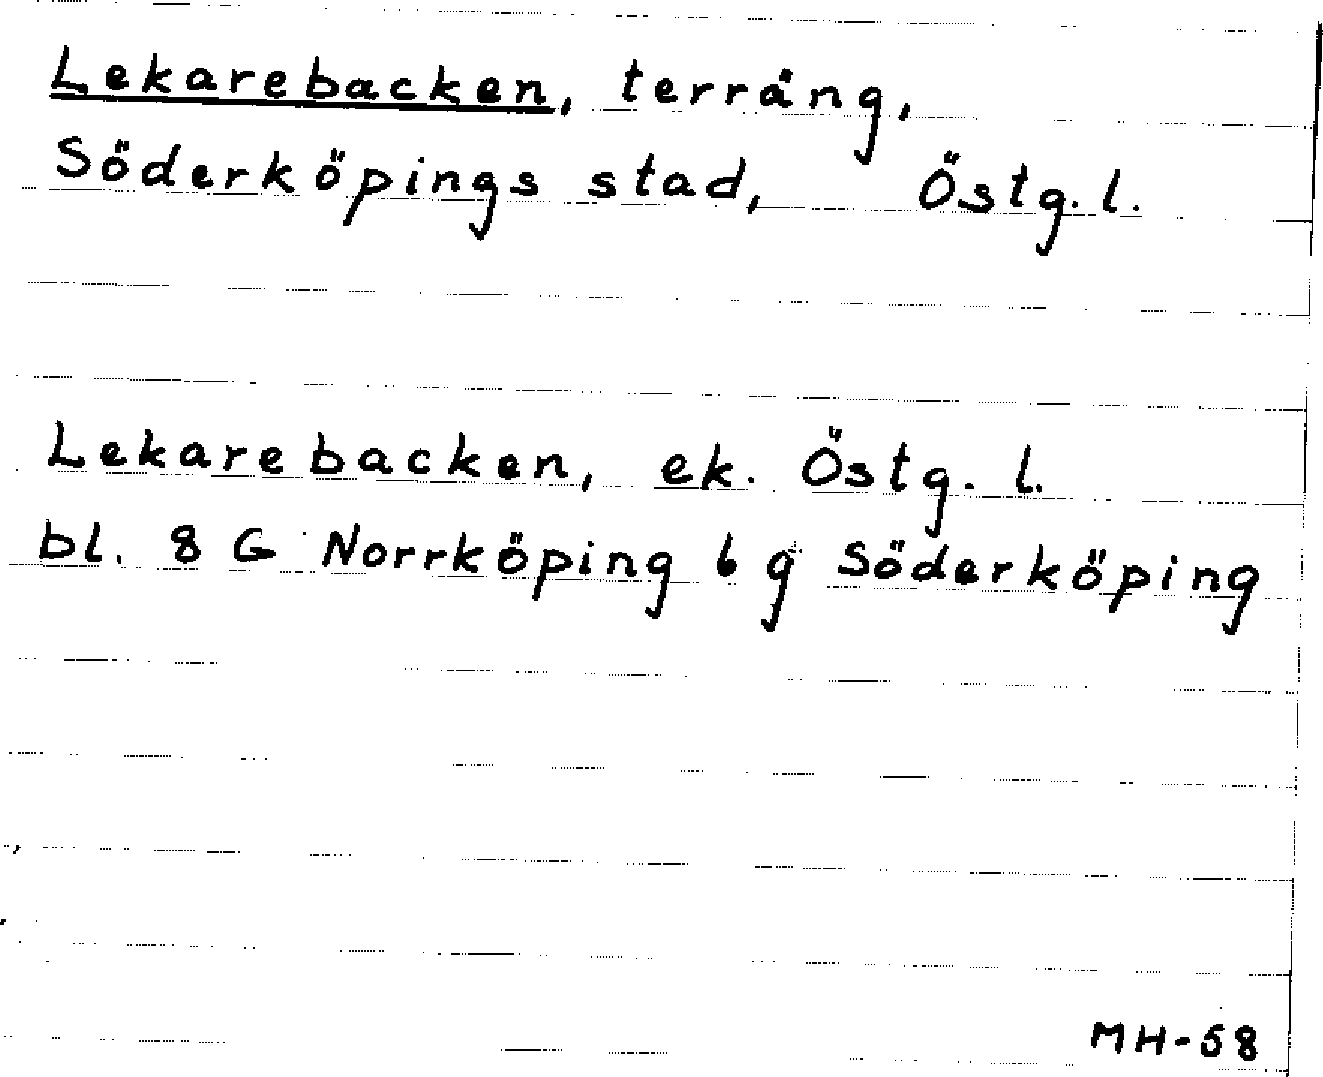 Lekarebacken, terräng,
Söderköpings stad, Östg. l.
Lekarebacken, ek. Östg. l.
bl. 8 G Norrköping 6 g Söderköping
MH-58